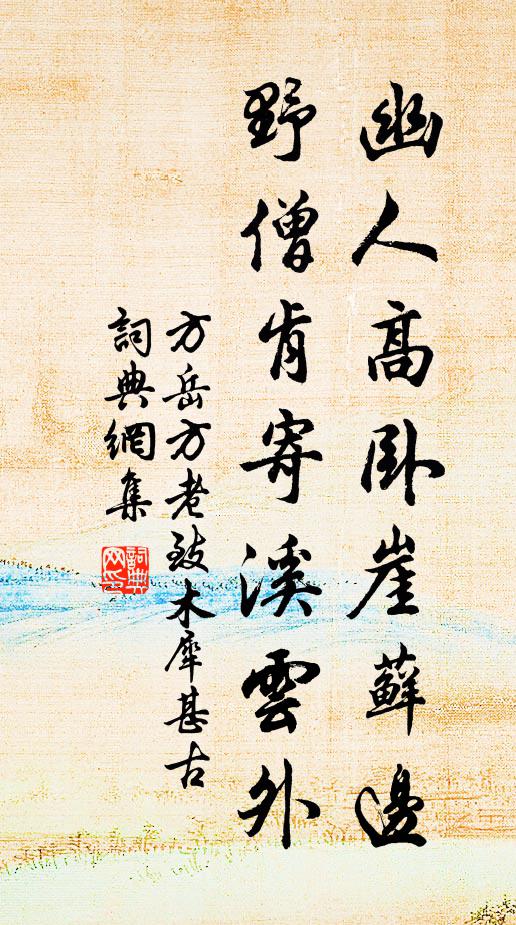 幽人高臥崖蘚邊
野僧肯寄溪雲外
方岳方老致木犀甚古
詞典網集
詞典网印